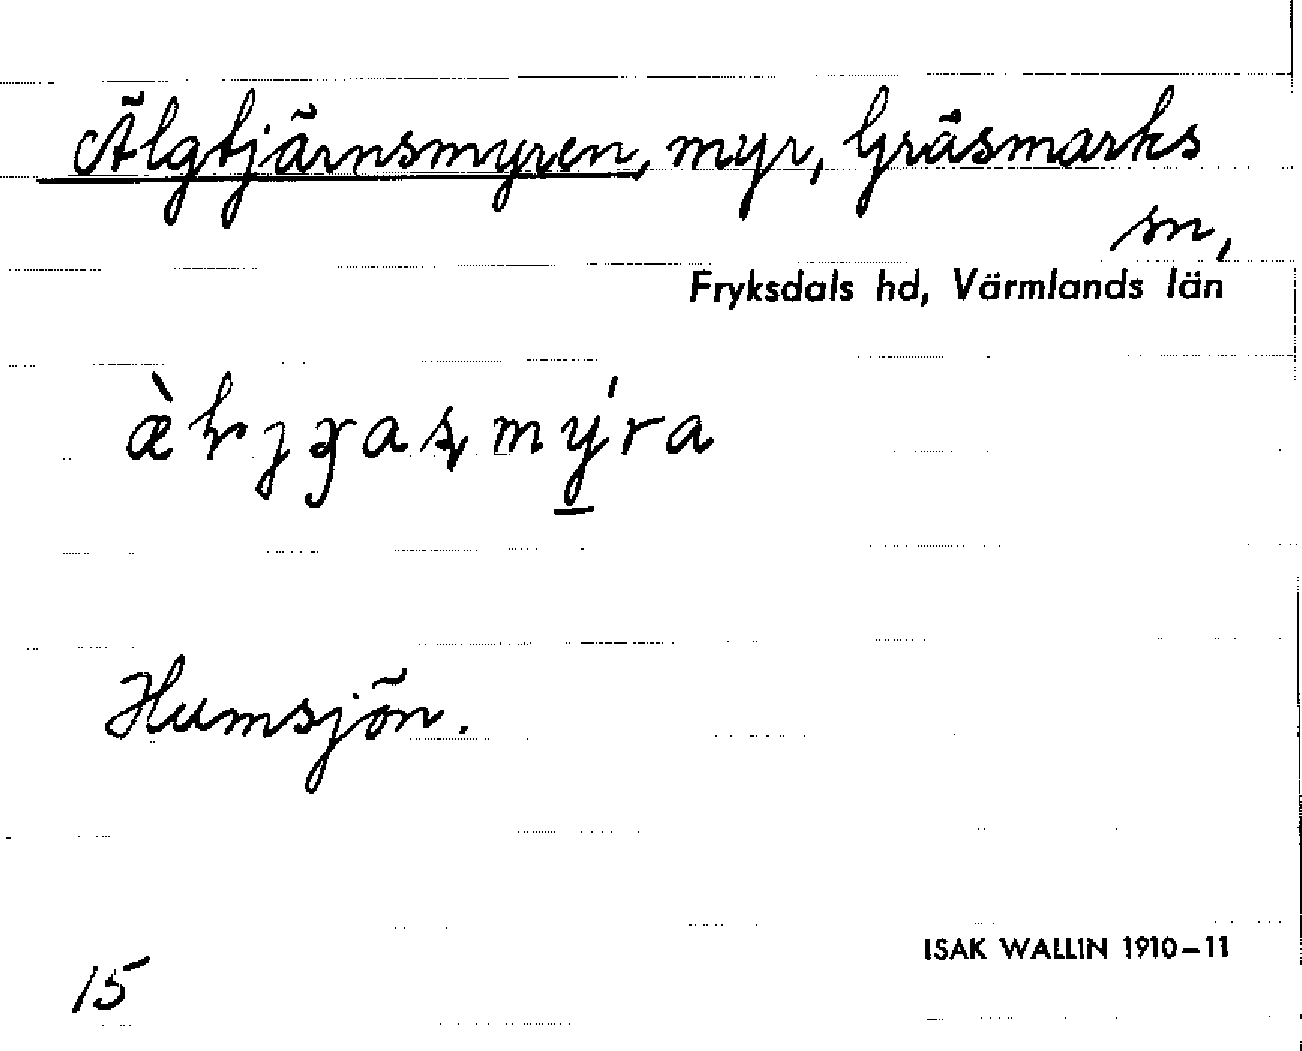 Älgtjärnsmyren, myr, Gräsmarks
sn,
Fryksdals hd, Värmlands län
Humsjön.
ISAK WALLIN 1910–11
15